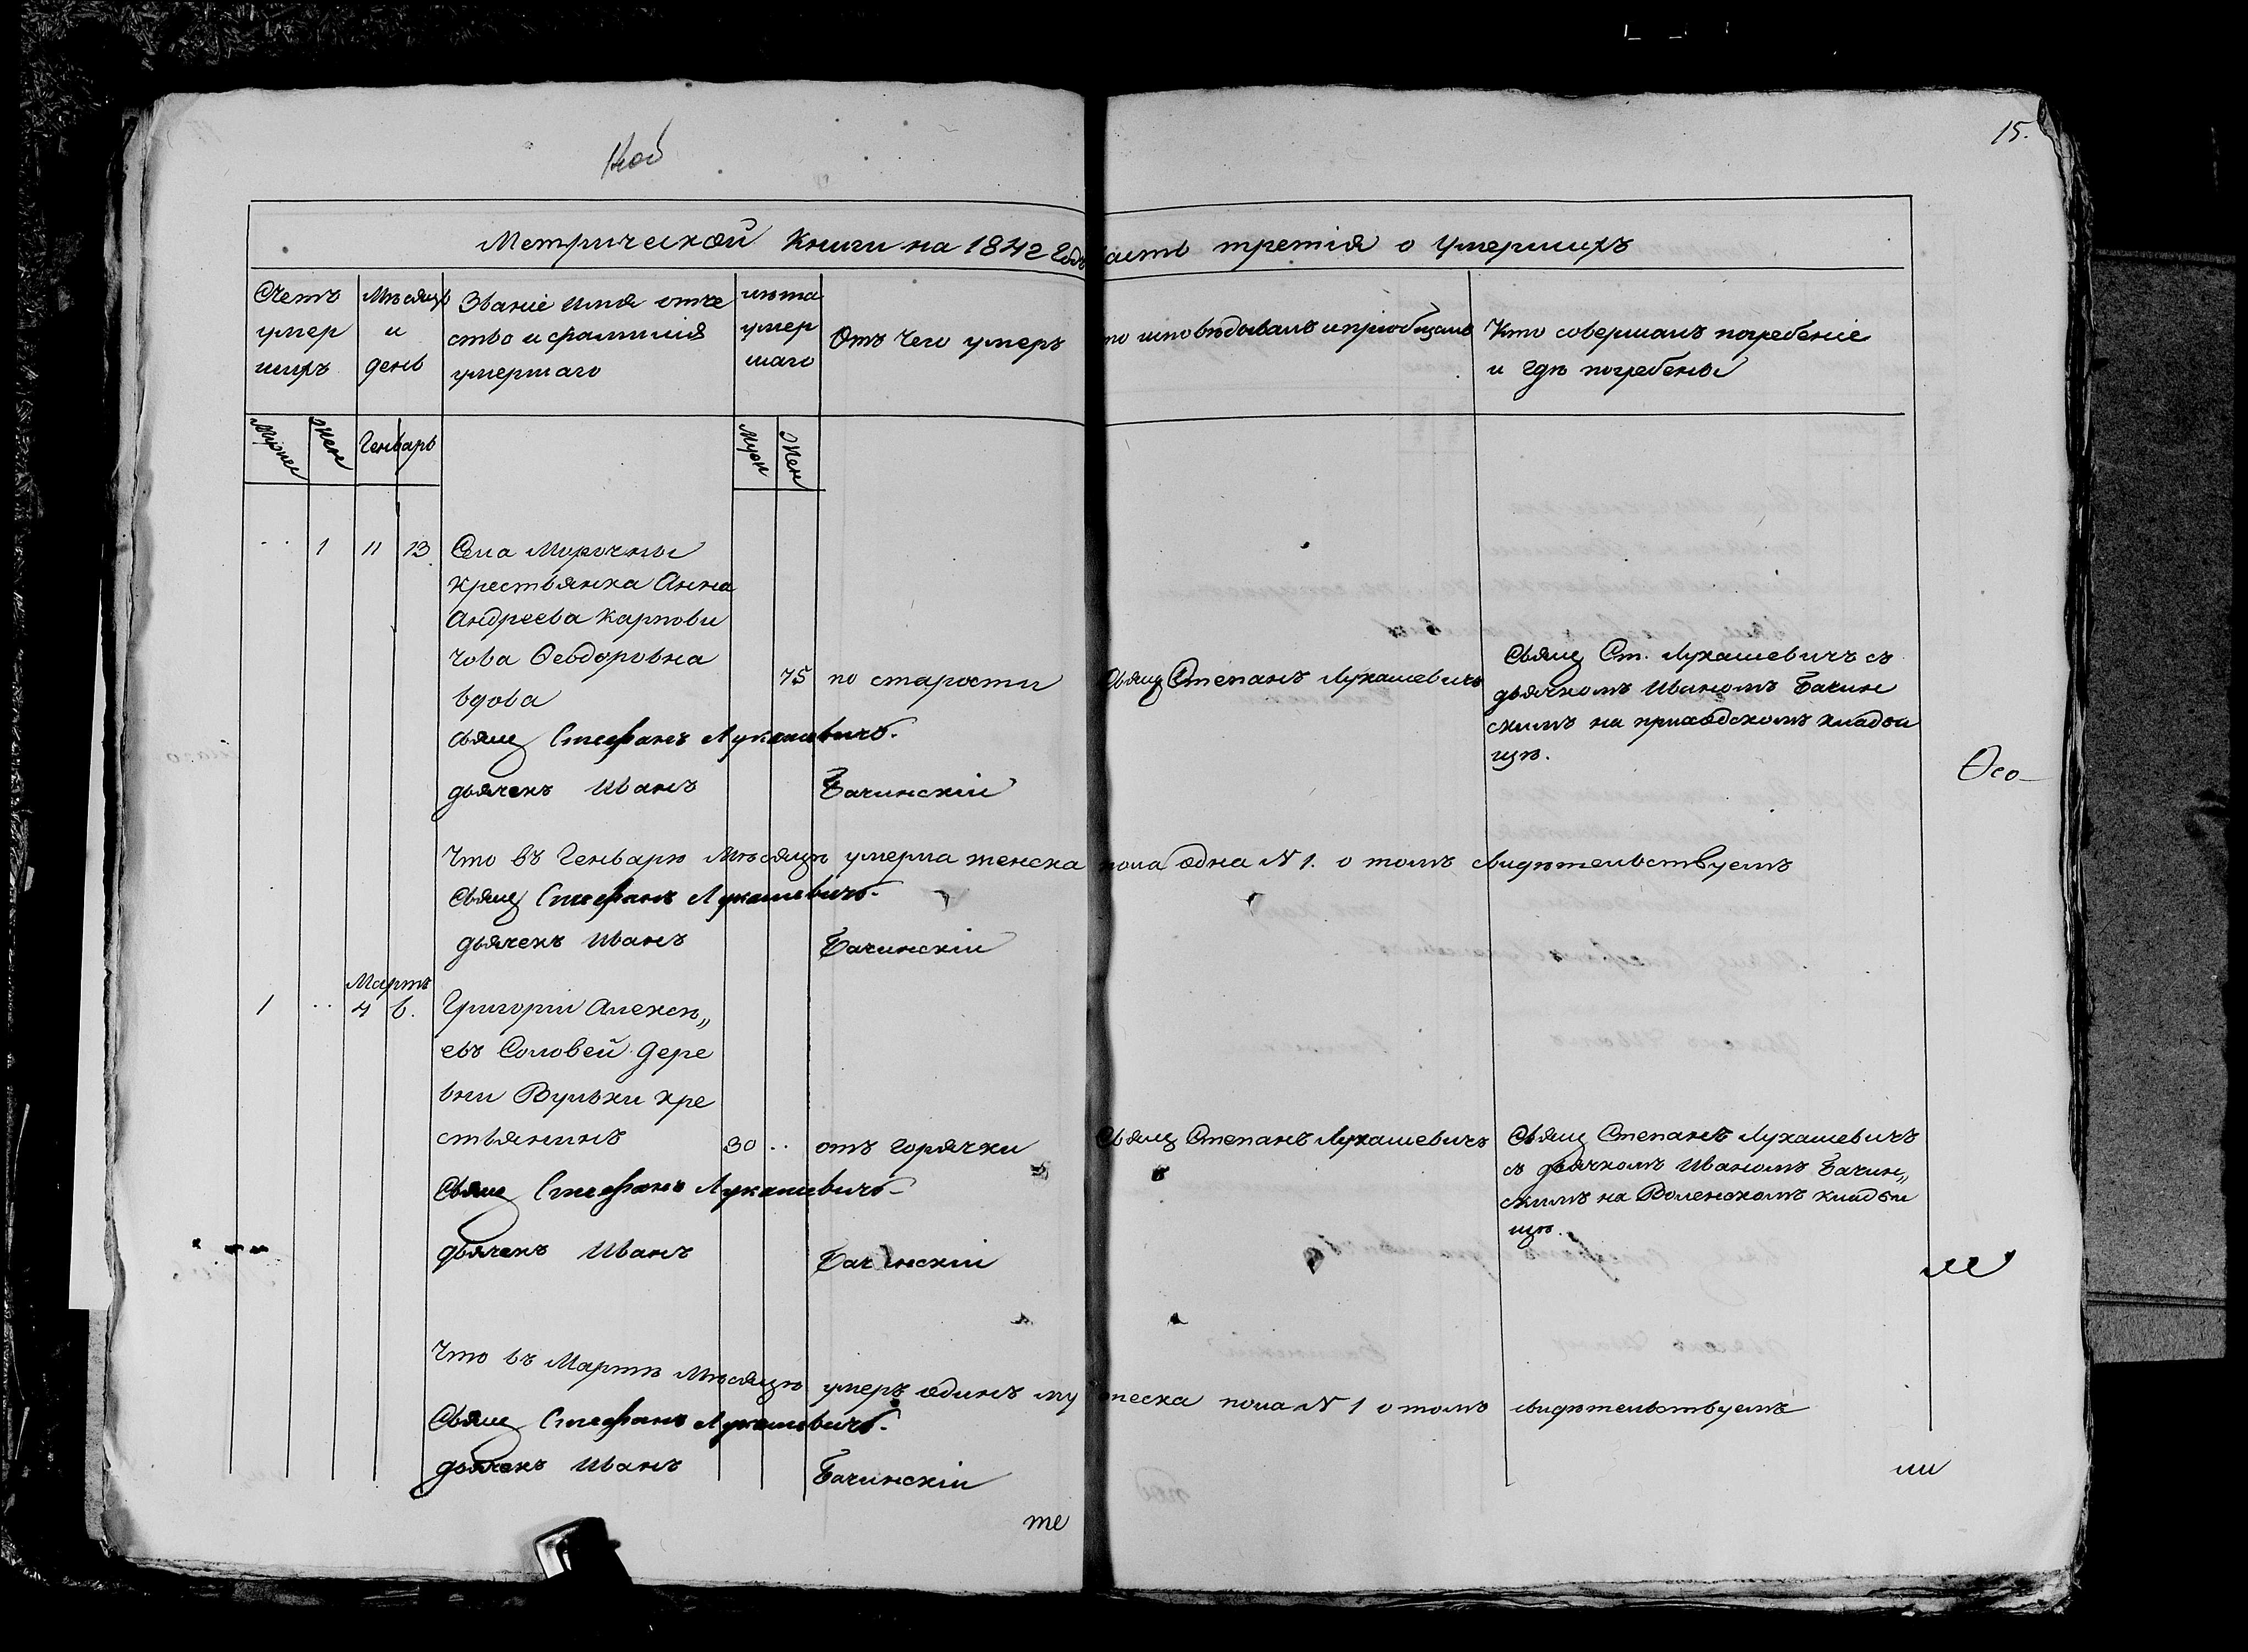 15.
Метрической Книги на 1842 Годъ часть третія о Умершихъ
Счетъ умер шихъ
Мѣсяцъ и день
Званіе имя отче ство и фамилія умершаго
лѣта умер шаго
Отъ Чего умеръ
то исповѣдовалъ и пріобщалъ
Кто совершалъ погребеніе и гдѣ погребены
Мужес Жен Генварь Муж Жен
1 11 13 Села Морочны
крестьянка Анна
Андреева Карпови
чова Ѳеодоровна
вдова
75 по старости Свящ Степанъ Лукашевичъ
Свящ Ст. Лукашевичъ съ
дьячкомъ Иваномъ Бачин
скимъ на приходскомъ кладби
щѣ.
свящ Стефанъ Лукашевичъ.
дьячекъ Иванъ Бачинскій
Ѳео
Что въ Генварѣ Мѣсяцѣ умерла женска пола одна N 1. о томъ свидѣтельствуемъ
Свящ Стефанъ Лукашевичъ.
дьячекъ Иванъ Бачинскій
Мартъ
1 4 6. Григорій Алексѣ„
евъ Соловей Дере
вни Вульки кре
стьянинъ
30 отъ горячки Свящ Степанъ Лукашевичъ
Свящ Степанъ Лукашевичъ
съ дьячкомъ Иваномъ Бачин„
скимъ на Воленскомъ кладби
щѣ.
Свящ Стефанъ Лукашевичъ
дьячекъ Иванъ Бачинскій
Что въ Мартѣ Мѣсяцѣ умеръ одинъ мужеска пола N 1 о томъ свидѣтельствуемъ
Свящ Стефанъ Лукашевичъ.
дьячекъ Иванъ Бачинскій
те